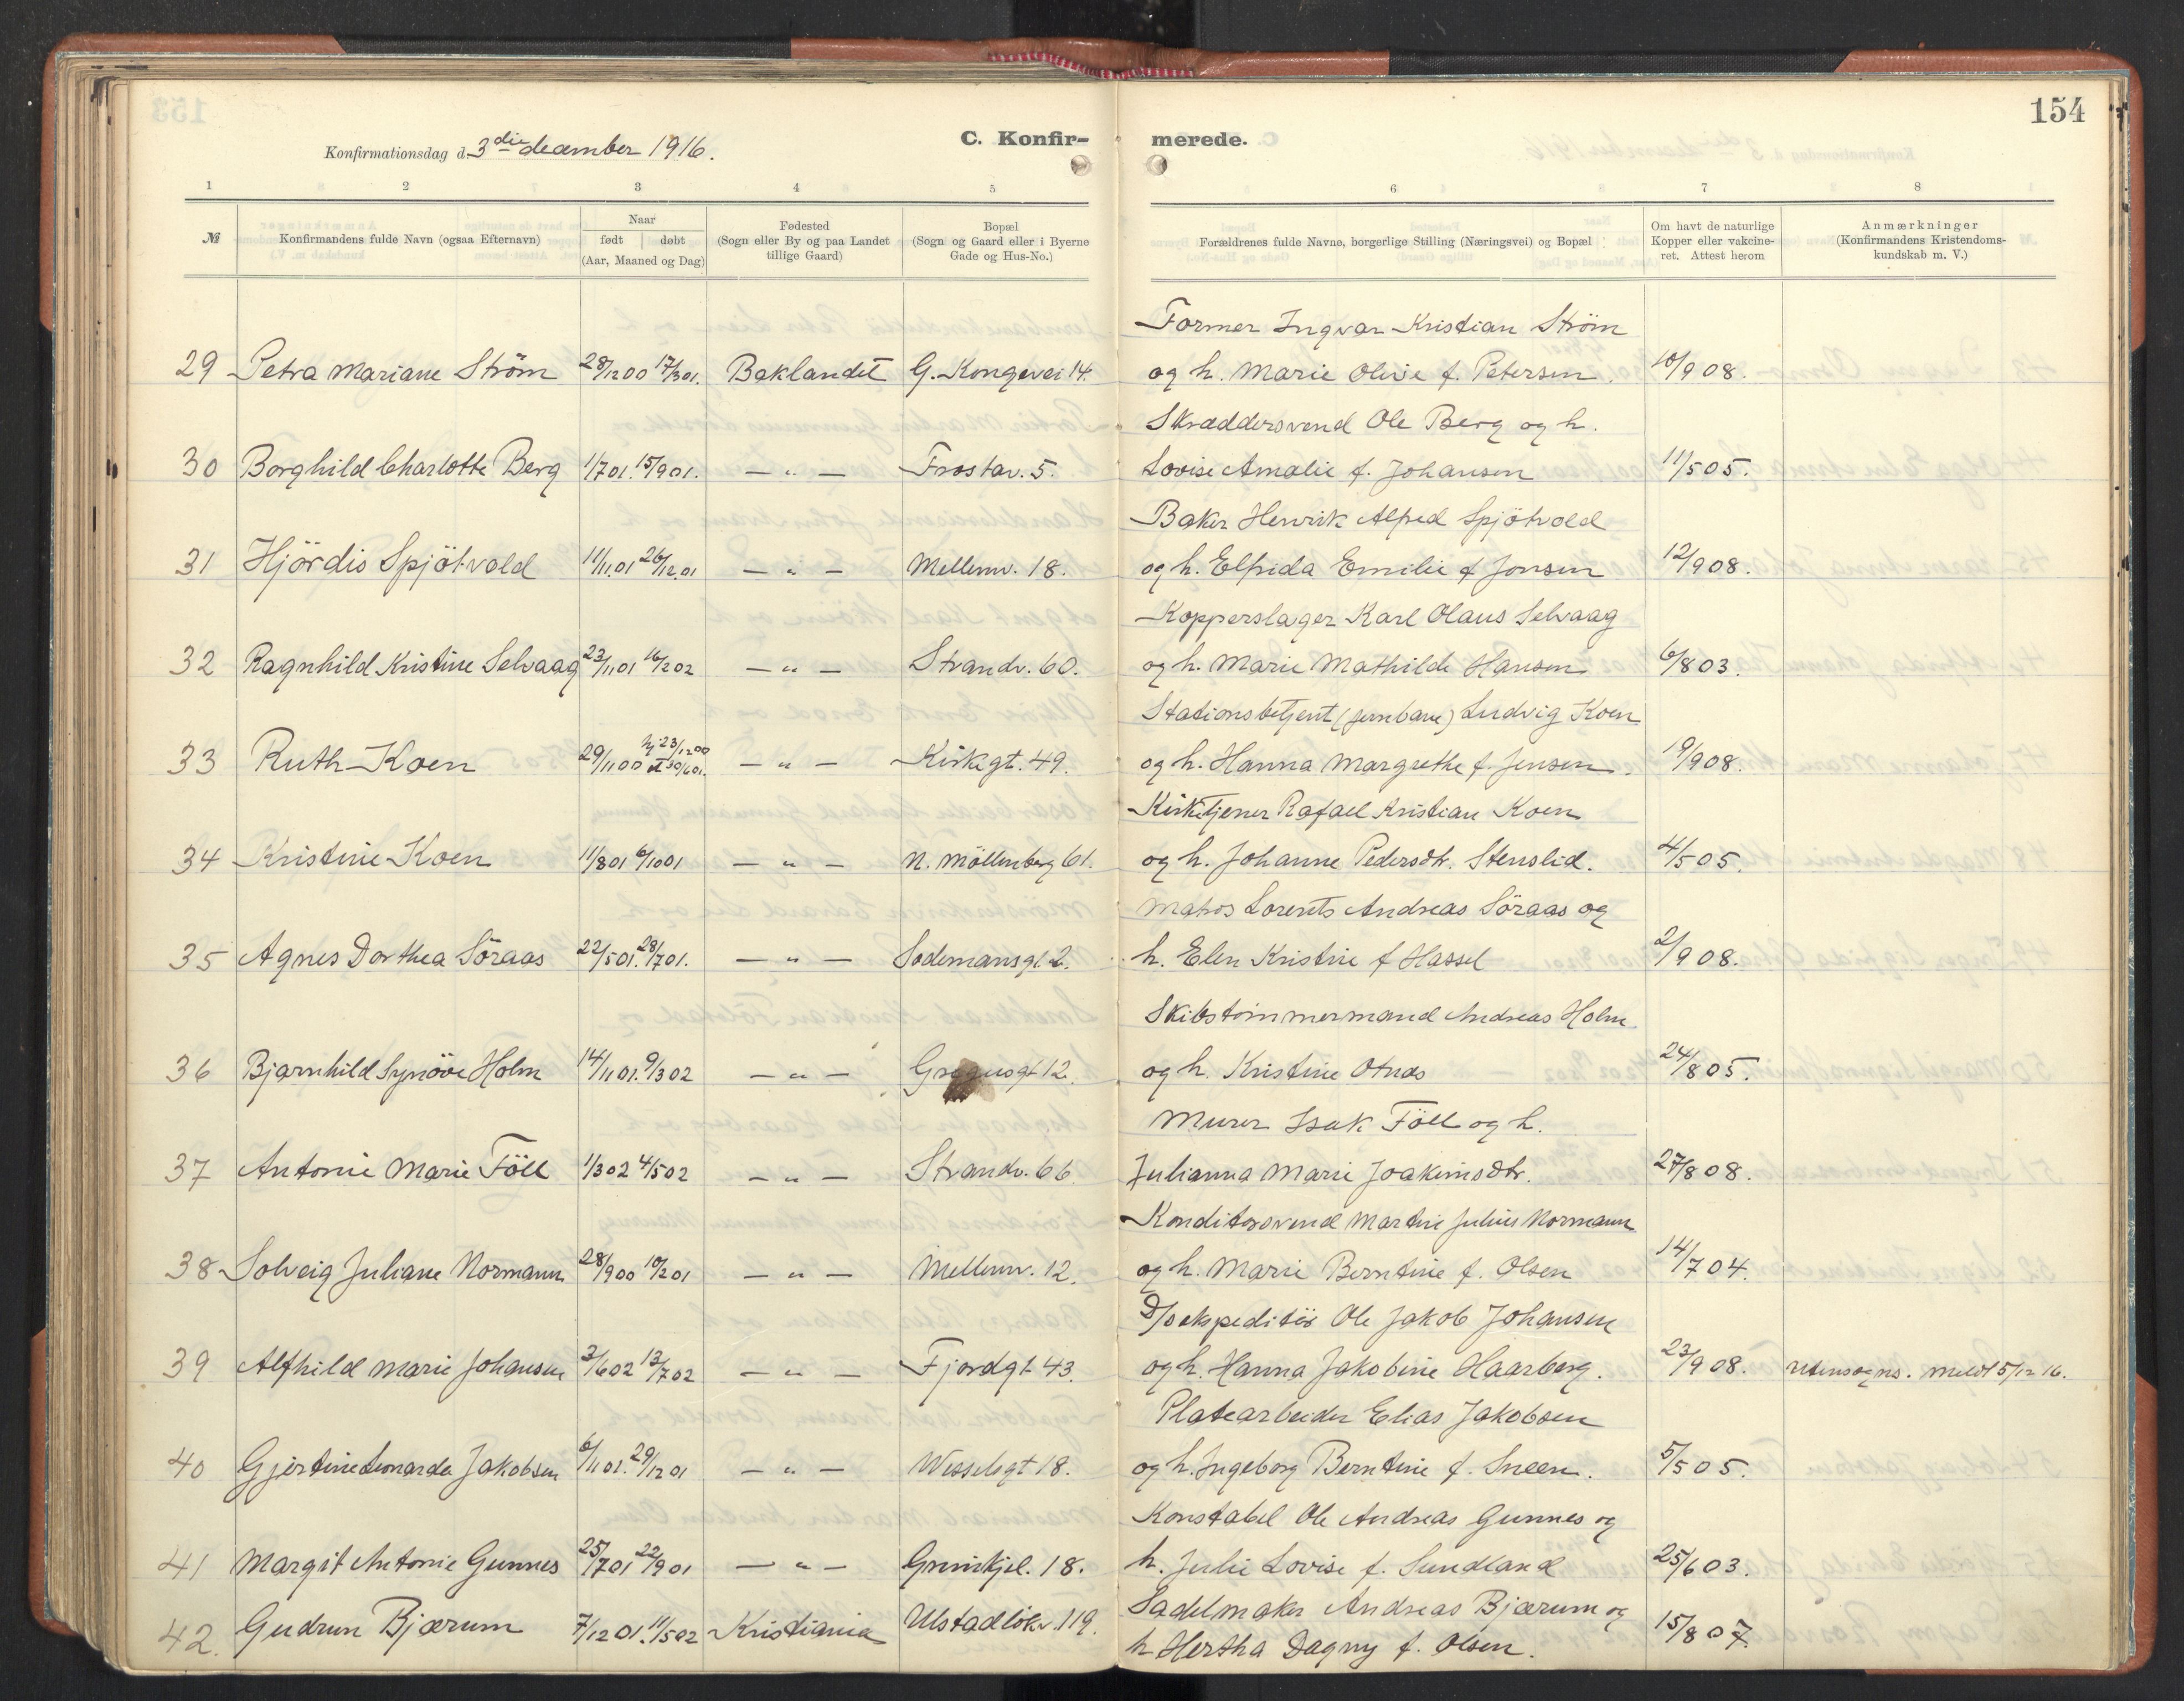 154
Konfirmationsdag d. 3die december 1916.
C. Konfir-
merede.
1 2 3 4 5 6 7 8
№
Konfirmandens fulde Navn (ogsaa Efternavn)
Naar
født døbt
(Aar, Maaned og Dag)
Fødested
(Sogn eller By og paa Landet
tillige Gaard)
Bopæl
(Sogn og Gaard eller i Byerne
Gade og Hus-No.)
Forældrenes fulde Navne, borgerlige Stilling (Næringsvei) og Bopæl
Om havt de naturlige
Kopper eller vakcine-
ret. Attest herom
Anmærkninger
(Konfirmandens Kristendoms-
kundskab m. V.)
Former Ingvar Kristian Strøm
29 Petra Mariane Strøm 28/12 00 17/3 01. Baklandet G. Kongevei 14. og h. Marie Olise f. Petersen. 10/9 08.
Skræddersvend Ole Berg og h.
30 Borghild Charlotte Berg 1/7 01. 15/9 01. — " — Frostav. 5. Lovise Amalie f. Johansen 11/5 05.
Baker Henrik Alfred Spjøtvold
31 Hjørdis Spjøtvold 11/11 01 26/12 01 — " — Mellemv. 18. og h. Elfrida Emilie f Jonsen 12/9 08.
Kopperslager Karl Olaus Selvaag
32 Ragnhild Kristine Selvaag 23/11 01 16/2 02 — " — Strandv. 60. og h. Marie Mathilde Hansen 6/8 03.
Stationsbetjent (jernbane) Ludvig Koen
33 Ruth Koen 29/11 00 hj. 23/12 00 st 30/6 01. — " — Kirkegt. 49. og h. Hanna Margrethe f. Jensen. 19/9 08.
Kirketjener Rafael Kristian Koen
34 Kristine Koen 11/8 01 6/10 01 — " — N. Møllenberg 61. og h. Johanne Pedersdtr. Stenslid. 4/5 05.
Matros Lorents Andreas Søraas og
35 Agnes Dorthea Søraas 22/5 01. 28/7 01. — " — Sodemansgt. 2. h. Elen Kristine f Hassel 2/9 08.
Skibstømmermand Andreas Holm.
36 Bjarnhild Synøve Holm 14/11 01. 9/3 02 — " — Gregusgt 12. og h. Kristine Otnes 24/8 05.
Murer Isak Føll og h.
37 Antonie Marie Føll 1/3 02 4/5 02 — " — Strandv. 66. Julianna Marie Joakimsdtr. 27/8 08.
Konditorsvend Martin Julius Normann
38 Solveig Juliane Normann 28/9 00 10/2 01 — " — Mellemv. 12. og h. Marie Berntine f. Olsen 14/7 04.
D/sekspeditør Ole Jakob Johansen
39 Alfhild Marie Johansen 3/6 02 13/7 02 — " — Fjordgt 43. og h. Hanna Jakobine Haarberg. 23/9 08. Utensogns. Meldt 5/12 16.
Platearbeider Elias Jakobsen
40 Gjertine Leonarda Jakobsen 6/11 01. 29/12 01 — " — Wesselsgt 18. og h. Ingeborg Berntine f. Sneen. 5/5 05.
Konstabel Ole Andreas Gunnes og
41 Margit Antonie Gunnes 25/7 01 22/9 01 — " — Grinikjel. 18. h. Julie Lovise f. Sundland 25/6 03.
Sadelmaker Andreas Bjærum og
42. Gudrun Bjærum 7/12 01. 11/5 02 Kristiania Ulstadløkv. 119. h Hertha Dagny f. Olsen. 15/8 07.